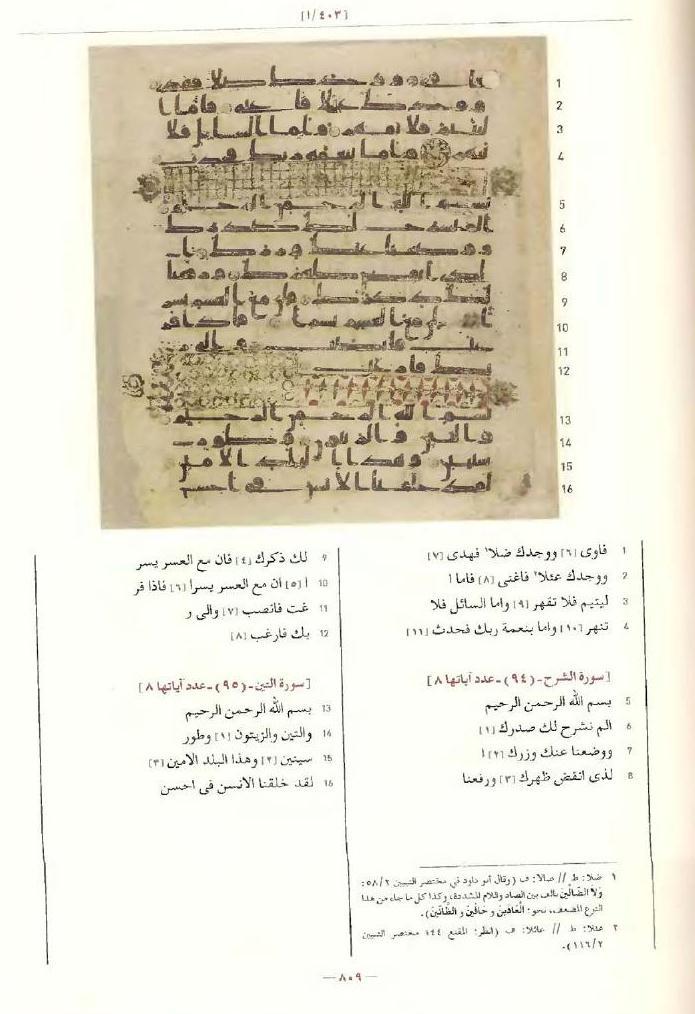 [١/٤٠٣]
1
2
3
4
5
6
7
8
9
10
11
12
13
14
15
16
١ فاوى [٦] ووجدك ضلا١ فهدى [٧]
٢ ووجدك عئلا٢ فاغنى [٨] فاما ا
٣ ليتيم فلا تقهر [٩] واما السائل فلا
٤ تنهر [١٠] واما بنعمة ربك فحدث [١١]
[سورة الشرح-(٩٤)-عدد آياتها ٨]
٥ بسم الله الرحمن الرحيم
٦ الم نشرح لك صدرك [١]
٧ ووضعنا عنك وزرك [٢] ا
٨ لذى انقض ظهرك [٣] ورفعنا
٩ لك ذكرك [٤] فان مع العسر يسر
١٠ ا [٥] ان مع العسر يسرا [٦] فاذا فر
١١ غت فانصب [٧] والى ر
١٢ بك فارغب [٨]
[سورة التين-(٩٥)-عدد آياتها ٨]
١٣ بسم الله الرحمن الرحيم
١٤ والتين والزيتون [١] وطور
١٥ سينين [٢] وهذا البلد الامين [٣]
١٦ لقد خلقنا الانسن فى احسن
١ ضلا: ط // ضالا: ف (وقال أبو داود في مختصر التبيين ٥٨/٢:
وَلَا الضَّالِّينَ بالف بين الضاد واللام المشددة، وكذا كل ما جاء من هذا
النوع المضعف، نحو: الْعَادِّينَ و حَافِّينَ و الظَّانِّينَ).
٢ عئلا: ط // عائلا: ف (انظر: المقنع ٤٤٤ مختصر التبيين
١١٦/٢).
— ٨٠٩ —